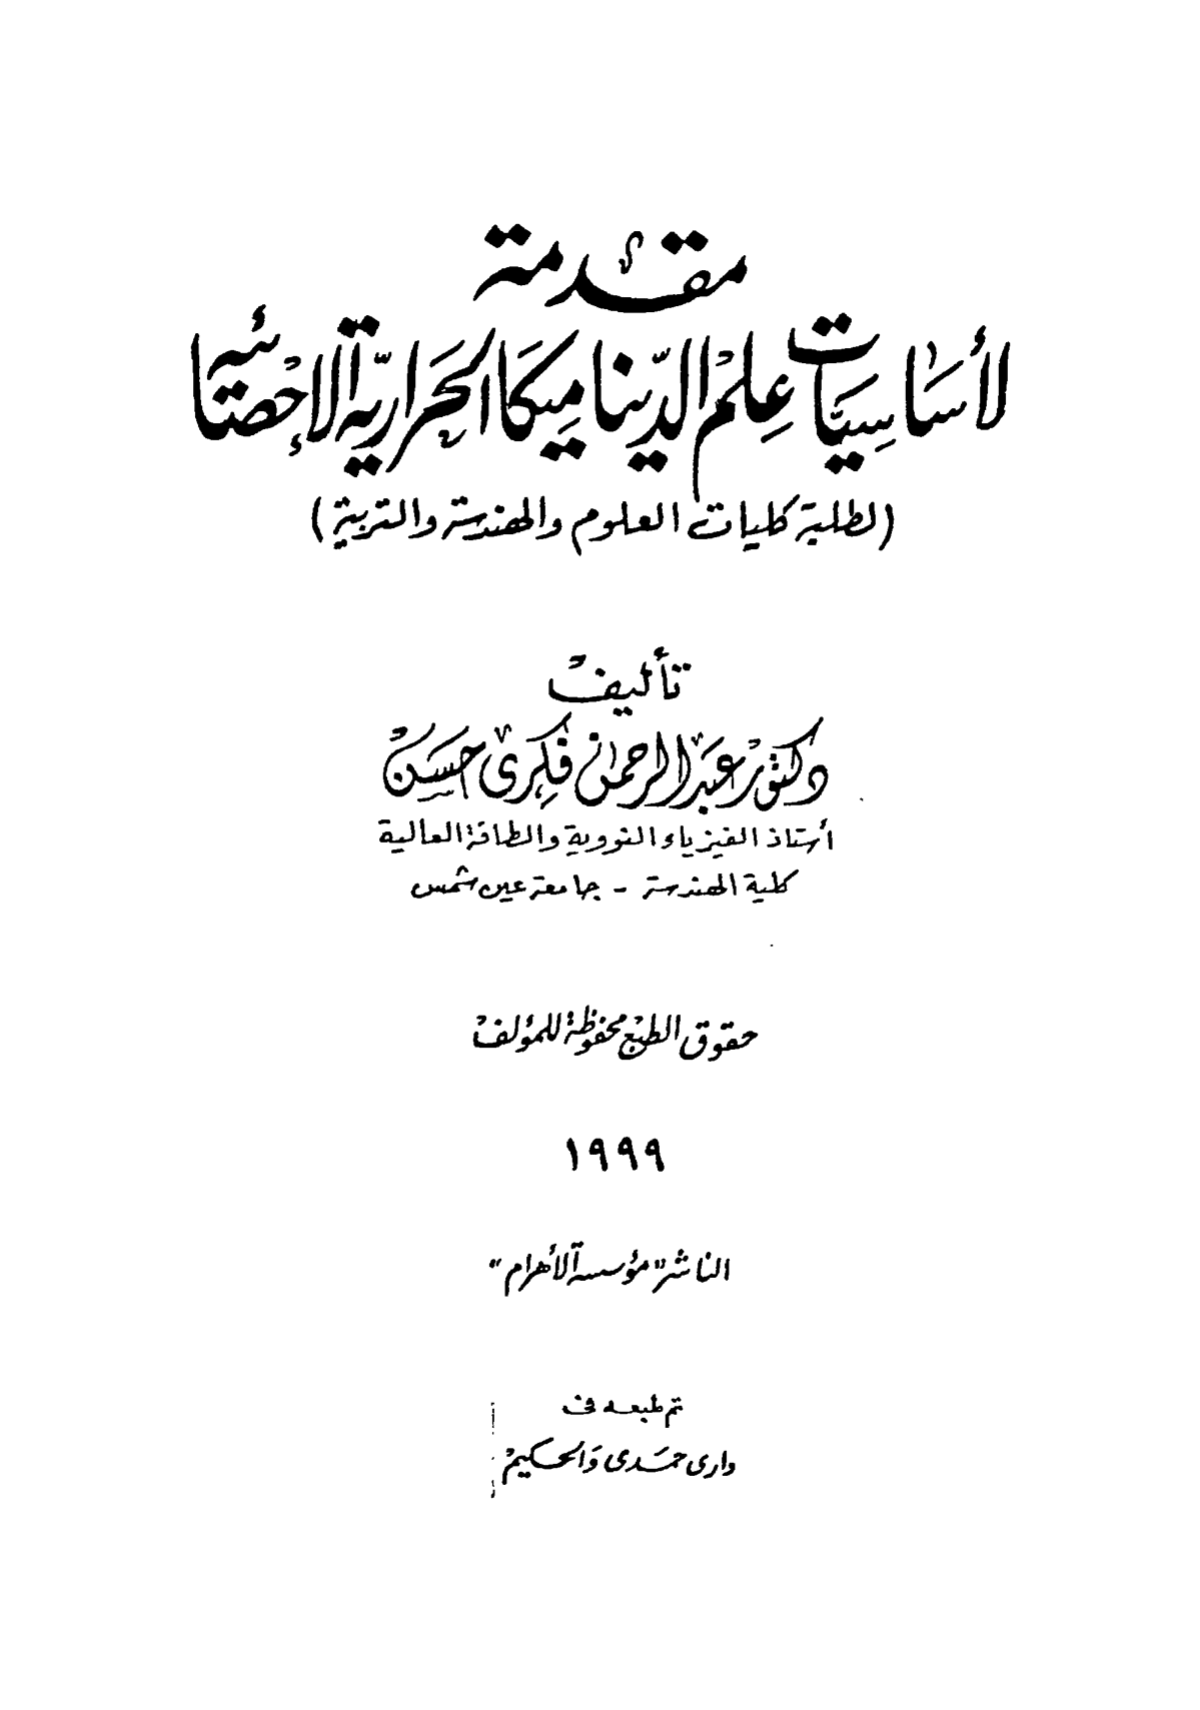 مقدمة
لأساسيات علم الديناميكا الحرارية الإحصائية
(لطلبة كليات العلوم والهندسة والتربية)
تأليف
دكتور عبد الرحمن فكرى حسن
أستاذ الفيزياء النووية والطاقة العالية
كلية الهندسة - جامعة عين شمس
حقوق الطبع محفوظة للمؤلف
١٩٩٩
الناشر "مؤسسة الأهرام"
تم طبعه فى
دارى حمدى والحكيم